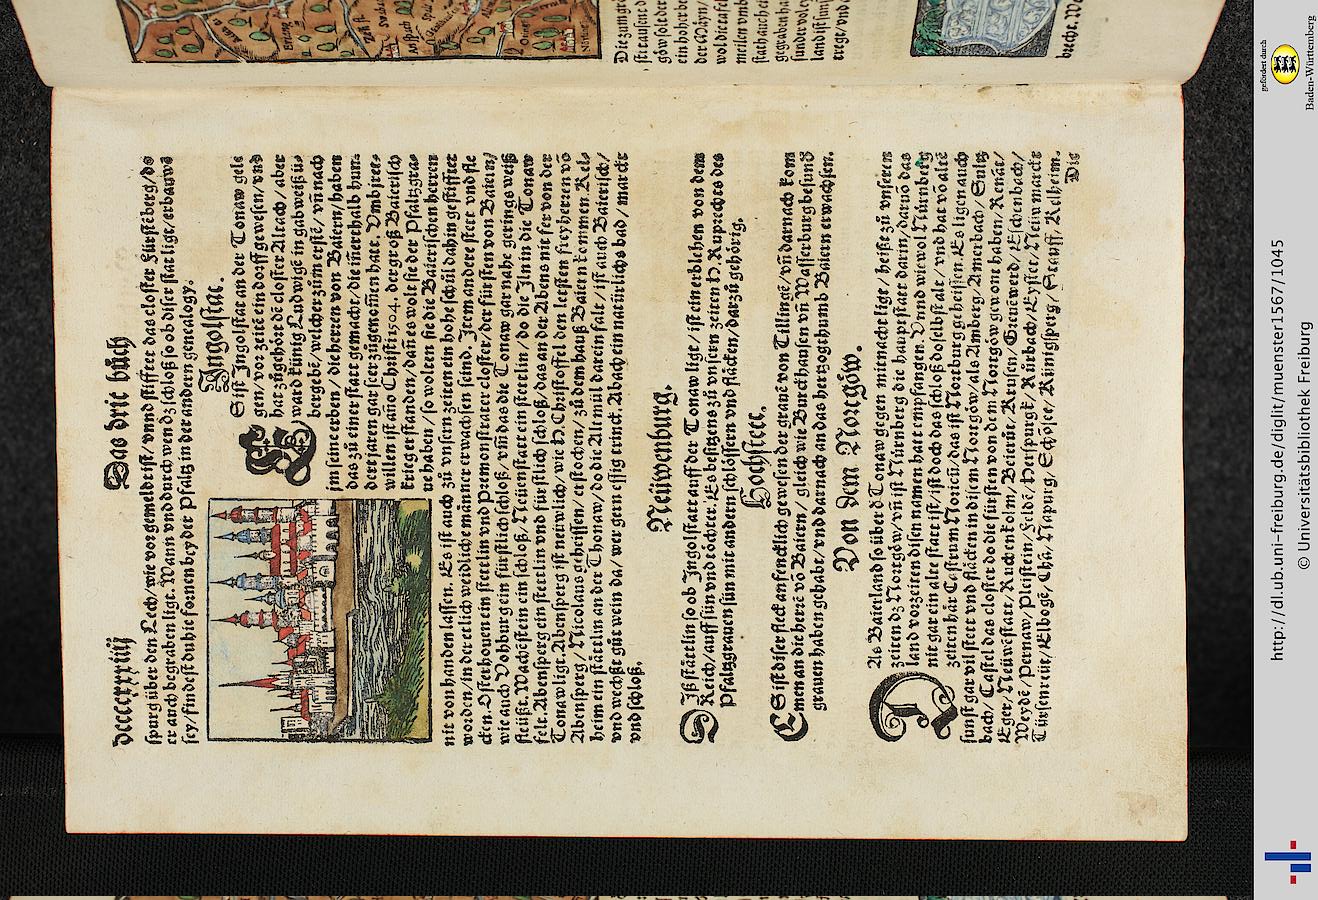 dccccxxiiij Das drit bůch
spurg über den Lech/wie vor gemeldet ist/vnnd stifftet das closter Fürstēberg/do
er auch begraben ligt. Wann vnd durch wen dz schloß so ob diser statt lige/erbauwē
sey/findest du hie fornen bey der Pfaltz in der andern genealogy.
Ingolstat.
ES ist Ingolstatt an der Tonaw gele
gen/vor zeitē ein dorff gewesen/vnd
hat zůgehört dē closter Altach/aber
ward künig Ludwigē in gab weiß ü-
bergebē/welcher zům erstē/vñ nach
jm seine erben/die herren von Baiern/haben
das zů einer statt gemacht/die innerthalb hun-
dert jaren gar seer zůgenommen hatt. Vmb jrent-
willen ist año Christi 1504. der groß Baierisch
krieg erstanden/dañ es wolt sie der Pfaltzgraf-
ue haben/so wolten sie die Baierischen herren
nit von handen lassen. Es ist auch zů vnsern zeiten ein hohe schůl dahin gestifftet
worden/in der etlich weidliche männer erwachsen seind. Item ander stett vnd fle
cken. Osterhouen ein stettlin vnd Premonstrater closter/der fürsten von Baiern/
wie auch Vohburg ein fürstlich schloß/vnd das die Tonaw gar nahe gerings weiß
fleüßt. Wachēstein ein schloß. Neüenstatt ein stettlin/do die Iln in die Tonaw
felt. Abensperg ein stettlin vnd fürstlich schloß/das an der Abens nit fer von der
Tonaw ligt. Abensperg ist newlich/wie H. Christoffel den letsten freyherren vō
Abensperg/Nicolaus geheissen/erstochen/zů dem hauß Baiern kommen. Kel-
heim ein stättlin an der Thonaw/do die Altmül darein falt/ist auch Baierisch/
vnd wechßt gůt wein da/wer gern essig trinckt. Abach ein natürlichs bad/marckt
vnd schloß.
Neüwenburg.
DIß stättlin so ob Ingolstatt auff der Tonaw ligt/ist ein erblehen von dem
Reich/auff sün vnd töchter. Es besitzens zů vnsern zeiten H. Ruprechts des
Pfaltzgrauen sün mit andern schlössern vnd fläcken/darzů gehörig.
Hochstett.
ES ist diser fleck anfencklich gewesen der grauē von Tillingē/vñ darnach kom
men an die herrē vō Baiern/gleich wie Burckhausen vñ Wasserburg besund
grauen haben gehabt/vnd darnach an das hertzogthumb Baiern erwachsen.
Von dem Norgöw.
DAs Baierland so über d Tonaw gegen mitnacht ligt/heißt zů vnseren
zeiten dz Norgöw/vñ ist Nürnberg die hauptstatt darin/darūb das
land vorzeiten disen namen hatt empfangen. Vnnd wiewol Nürnberg
nit gar ein alte statt ist/ist doch das schloß do selbst alt/vnd hat vō altē
zeiten här Castrum Noricū/das ist Norzburg geheissen. Es ligen auch
sunst gar vil stett vnd fläcken in disem Norgöw/als Amberg/Amerbach/Sultz
bach/Castel das closter do die fürsten von dem Norgöw gewont haben/Kenāt/
Eger/Neüwstatt/Kuchenkolm/Beierüt/Krusen/Grenewerd/Eschenbach/
Weydē/Pernaw/Pleistein/Feldē/Hersprugk/Rürbach/Eystet/Neüwmarckt
Türsenreüt/Elbogē/Chā/Napurg/Schönsee/Künigsperg/Stauff/Kelheim.
Die
Die zům grö
ist tausent d
buchs. We
gefördert durch
Baden-Württemberg
http://dl.ub.uni-freiburg.de/diglit/muenster1567/1045
© Universitätsbibliothek Freiburg